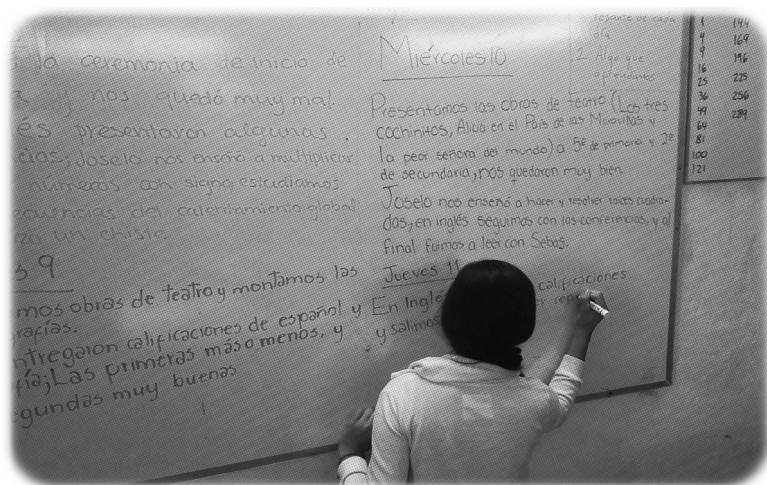 la ceremonia de inicio de
y nos quedó muy mal.
és presentaron algunas
cias; Joselo nos enseñó a multiplicar
números con signo, estudiamos
ecuencias del calentamiento global
zo un chiste.
s 9
mos obras de teatro y montamos las
rafías.
ntregaron calificaciones de español y
fía; Las primeras más o menos, y
gundas muy buenas
Miércoles 10
Presentamos las obras de teatro (Los tres
cochinitos, Alicia en el País de las Maravillas y
la peor señora del mundo) a 5º de primaria y 2º
de secundaria, nos quedaron muy bien.
Joselo nos enseñó a hacer y resolver raíces cuadra-
das, en inglés seguimos con las conferencias, y al
final fuimos a leer con Sebas.
Jueves 11
En Ingl calificaciones
y salimos er
resante de cada
día
2. Algo que
aprendamos
1 144
4 169
9 196
16 225
25 256
36 289
49
64
81
100
121